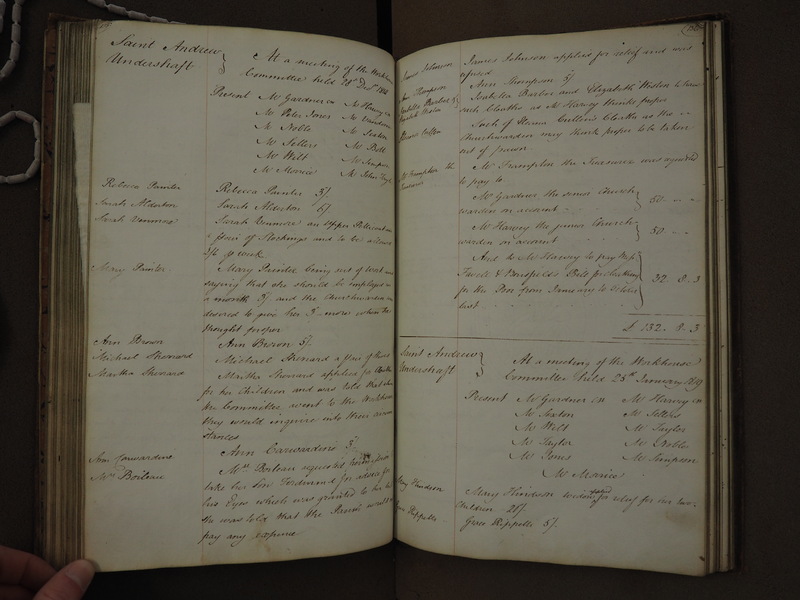 Saint Andrew
Undershaft
At a meeting of the Workhouse
Committee held 28th Decr
Present Mr Gardner cn Mr Harvey cn
Mr Peter Jones Mr
Mr Noble Mr Sexton
Mr Sellers Mr Bell
Mr Wilt Mr Simpson
Mr Morrice Mr John
Rebecca Painter Rebecca Painter 3/.
Sarah Alderton Sarah Alderton 6/.
Sarah Venmore Sarah Venmore an upper Petticoat
a pair of Stockings and to be allowed
3/6 p week
Mary Painter Mary Painter being out of work and
saying that she should be employed in
a month 5/. and the Churchwarden
desired to give her 5/. more when he
thought proper
Ann Brown Ann Brown 5/.
Michael Shennard Michael Shennard a pair of Shoes
Martha Shennard Martha Shennard applied for
for her Children and was told that when
the Committee went to the Workhouse
they would inquire into their circum
stances
Ann Carwardine Ann Carwardine 5/.
Mrs Boileau Mrs Boileau requested
take her Son Ferdinand for advice for
his Eyes which was granted to her but
she was told that the Parish would not
pay any expence
James Johnson James Johnson applied for relief and was
refused
Ann Thompson Ann Thompson 5/.
Isabella Barlow & Isabella Barlow and Elizabeth Weston to have
Elizabeth Weston such Cloaths as Mr Harvey thinks proper
Such of Cloaths as the
Churchwarden may think proper to be taken
out of pawn
Mr Frampton the Mr Frampton the Treasurer was requested
Treasurer to pay to
Mr Gardner the senior Church-
warden on account 50 . . - . -
Mr Harvey the junior Church-
warden on account 50 . - . -
And to Mr Harvey to pay
Bill for
for the Poor from January to October
last 32 . 8 . 3
£ 132 . 8 . 3
Saint Andrew
Undershaft
At a meeting of the Workhouse
Committee held 25th January 1819
Present Mr Gardner cn Mr Harvey cn
Mr Sexton Mr Sellers
Mr Wilt Mr Taylor
Mr Taylor Mr Noble
Mr Jones Mr Simpson
Mr Morrice
Mary Hindson Mary Hindson widow for relief for her two
Children 20/.
Grace Rippelle Grace Rippelle 5/.